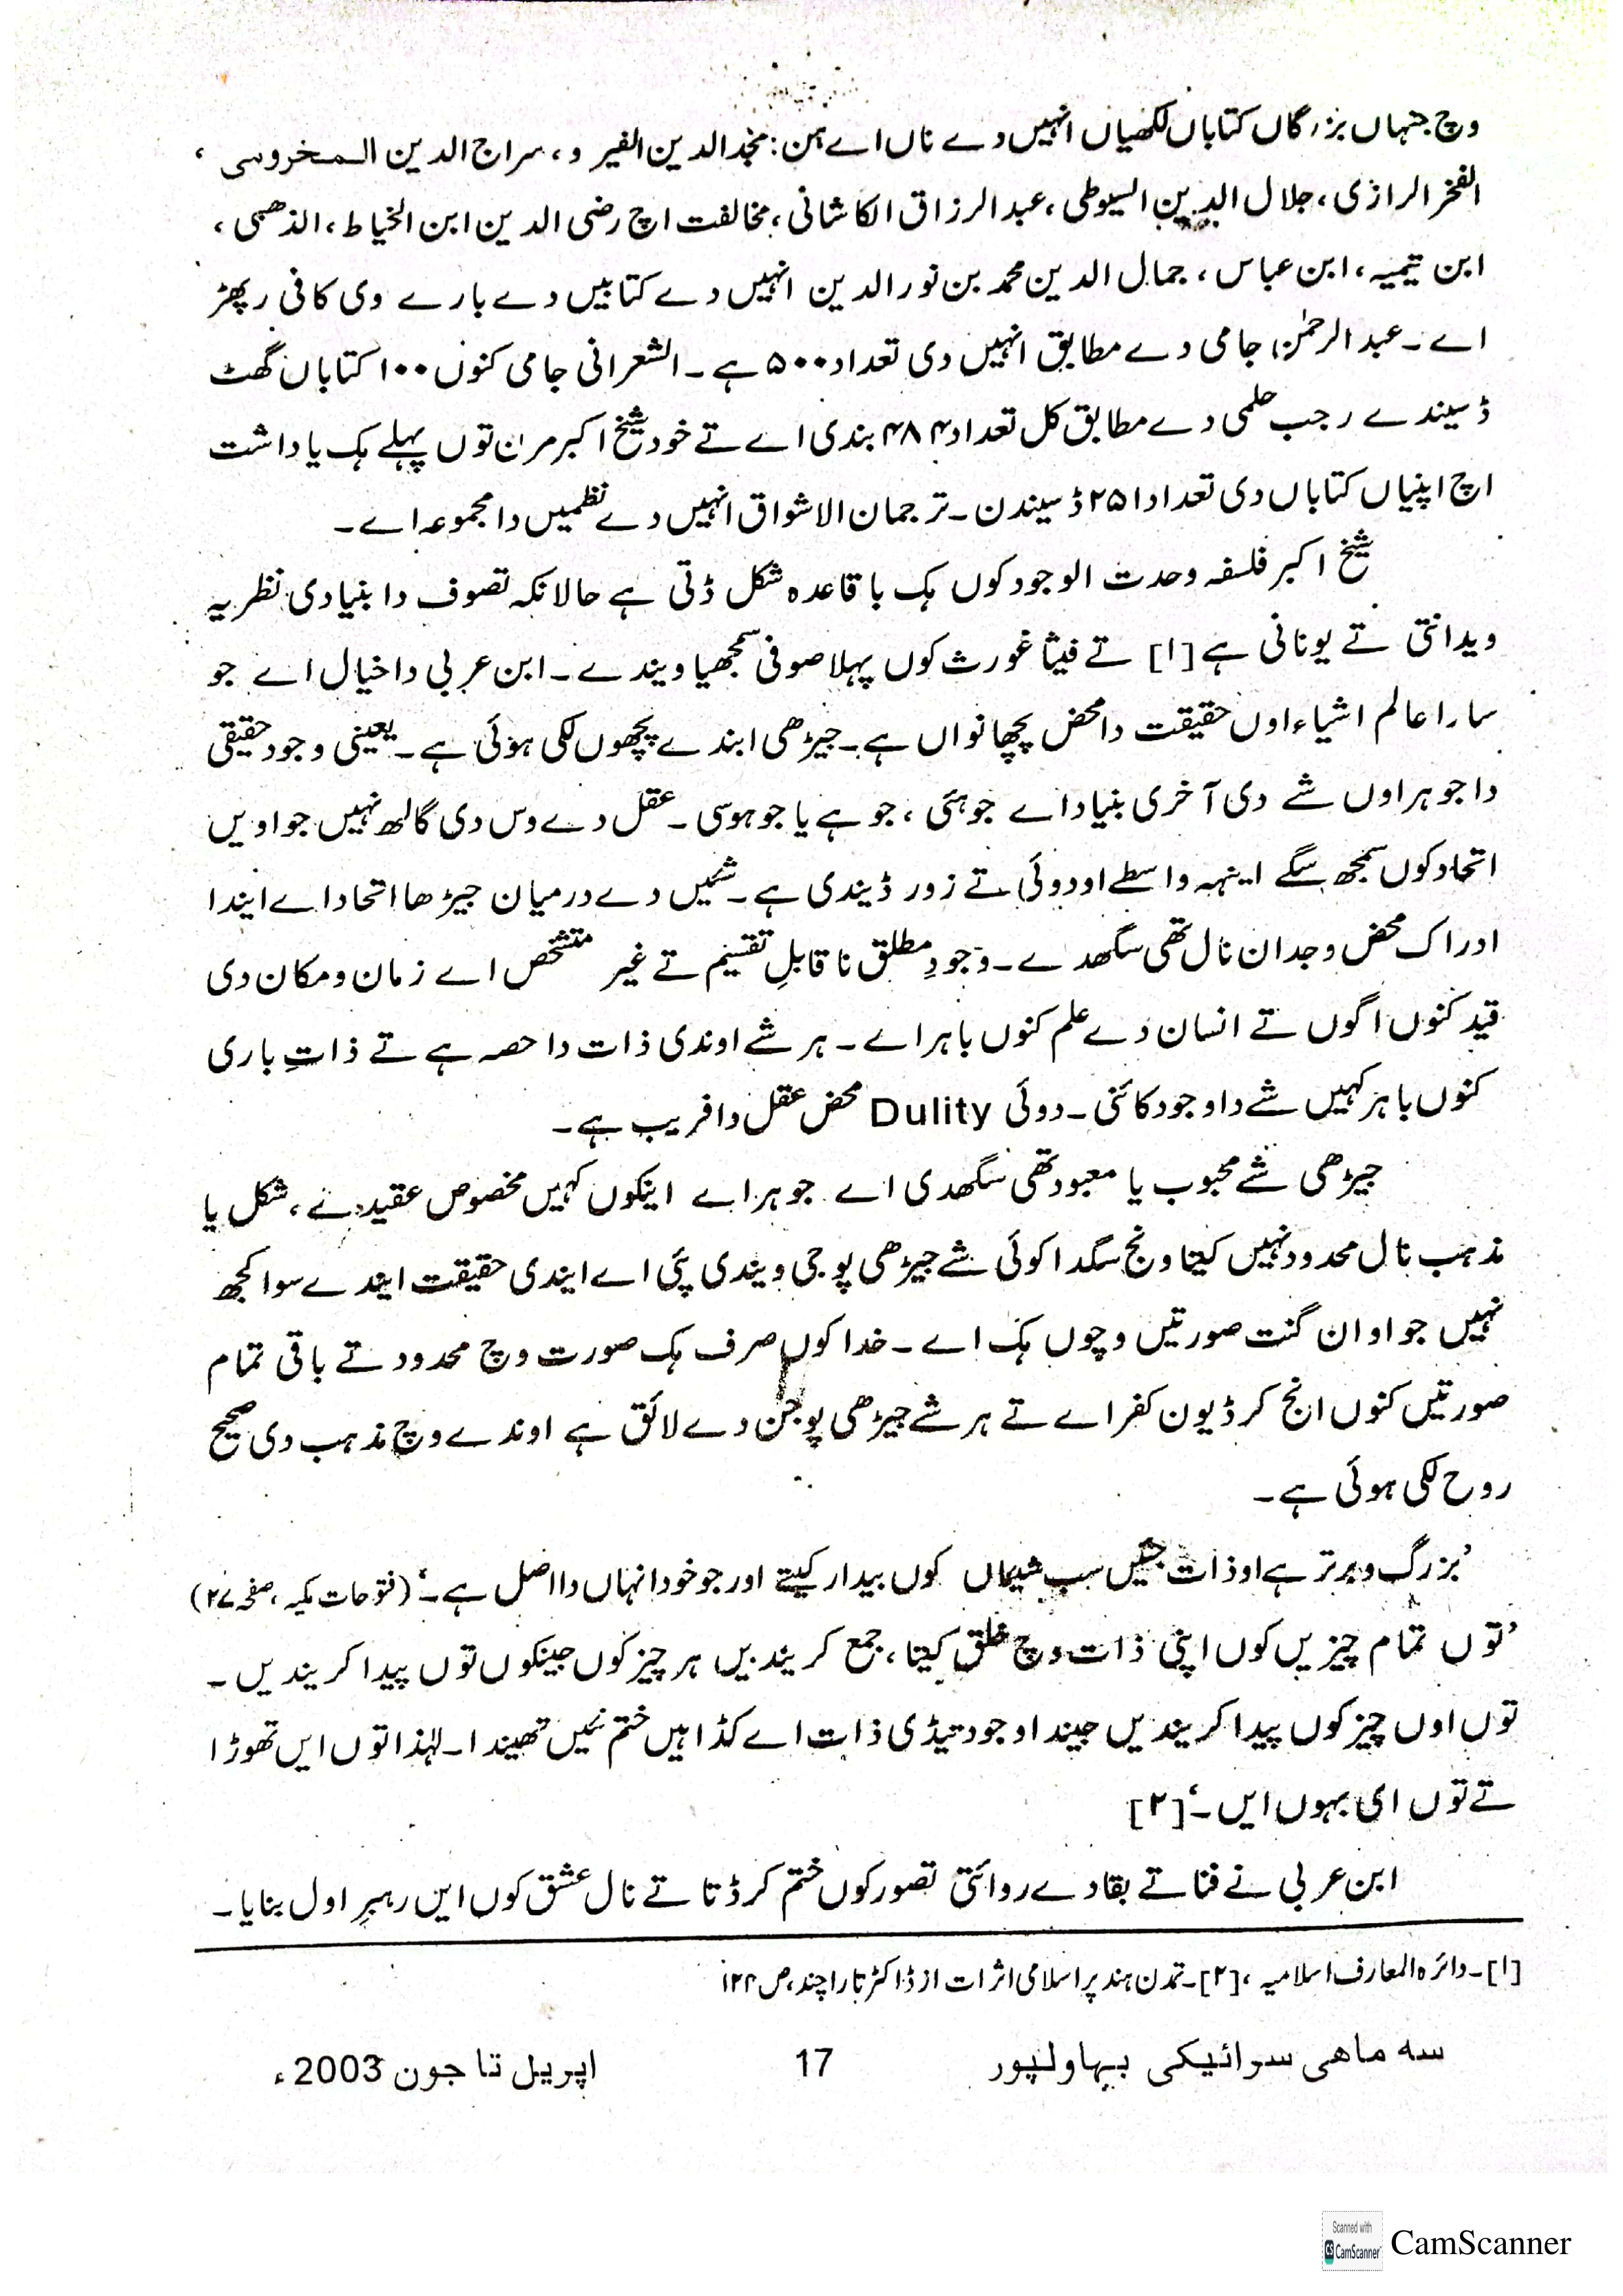 وچ جنہاں بزرگاں کتاباں لکھیاں انہیں دے ناں اے ہن: مجد الدین الفیر و، سراج الدین المخروسی ،
الفخر الرازی، جلال الدین السیوطی، عبد الرزاق الکاشانی، مخالفت اچ رضی الدین ابن الخیاط، الذھبی،
ابن تیمیہ، ابن عباس، جمال الدین محمد بن نور الدین انہیں دے کتابیں دے بارے وی کافی رپھڑ
اے۔ عبد الرحمٰن جامی دے مطابق انہیں دی تعداد ۵۰۰ ہے۔ الشعرانی جامی کنوں ۱۰۰ کتاباں گھٹ
ڈسیندے رجب حلمی دے مطابق کل تعداد ۴۸۴ بندی اے تے خود شیخ اکبر مرن توں پہلے ہک یاداشت
اچ اپنیاں کتاباں دی تعداد ۲۵۱ ڈسیندن۔ ترجمان الاشواق انہیں دے نظمیں دا مجموعہ اے۔
شیخ اکبر فلسفہ وحدت الوجود کوں ہک باقاعدہ شکل ڈتی ہے حالانکہ تصوف دا بنیادی نظریہ
ویدانتی تے یونانی ہے [۱] تے فیثا غورث کوں پہلا صوفی سمجھیا ویندے۔ ابن عربی دا خیال اے جو
سارا عالم اشیاء اوں حقیقت دا محض پچھانواں ہے۔ جیڑھی ایندے پچھوں لکی ہوئی ہے۔ یعینی وجود حقیقی
دا جوہر اوں شے دی آخری بنیاد اے جو ہئی، جو ہے یا جو ہوسی۔ عقل دے وس دی گالھ نہیں جو اویں
اتحاد کوں سمجھ سگے اینہہ واسطے او دوئی تے زور ڈیندی ہے۔ شئیں دے درمیان جیڑھا اتحاد اے ایندا
ادراک محض وجدان نال تھی سگھدے۔ وجودِ مطلق نا قابلِ تقسیم تے غیر متشخص اے زمان و مکان دی
قید کنوں اگوں تے انسان دے علم کنوں باہر اے۔ ہر شے اوندی ذات دا حصہ ہے تے ذاتِ باری
کنوں باہر کہیں شے دا وجود کائنی۔ دوئی Dulity محض عقل دا فریب ہے۔
جیڑھی شے محبوب یا معبود تھی سگھدی اے جوہر اے اینکوں کہیں مخصوص عقیدے، شکل یا
مذہب نال محدود نہیں کیتا ونج سگدا کوئی شے جیڑھی پوجی ویندی پئی اے ایندی حقیقت ایندے سوا کجھ
نہیں جو او ان گنت صورتیں وچوں ہک اے۔ خدا کوں صرف ہک صورت وچ محدود تے باقی تمام
صورتیں کنوں انج کر ڈیون کفر اے تے ہر شے جیڑھی پوجن دے لائق ہے اوندے وچ مذہب دی صحیح
روح لکی ہوئی ہے۔
’بزرگ و برتر ہے او ذات جئیں سب شیاں کوں بیدار کیتے اور جو خود انہاں دا اصل ہے۔‘ (فتوحات مکیہ، صفحہ ۲۷)
’توں تمام چیزیں کوں اپنی ذات وچ خلق کیتا، جمع کریندیں ہر چیز کوں جینکوں توں پیدا کریندیں۔
توں اوں چیز کوں پیدا کریندیں جیندا وجود تیڈی ذات اے کڈاہیں ختم نئیں تھیندا۔ لہٰذا توں ایں تھوڑا
تے توں ای بہوں ایں۔‘ [۲]
ابن عربی نے فنا تے بقا دے روائتی تصور کوں ختم کر ڈتا تے نال عشق کوں این رہبرِ اول بنایا۔
[۱]۔ دائرہ المعارف اسلامیہ، [۲]۔ تمدن ہند پر اسلامی اثرات از ڈاکٹر تارا چند، ص ۱۲۴
سہ ماھی سرائیکی بہاولپور 17 اپریل تا جون 2003ء
Scanned with
CS CamScanner
CamScanner